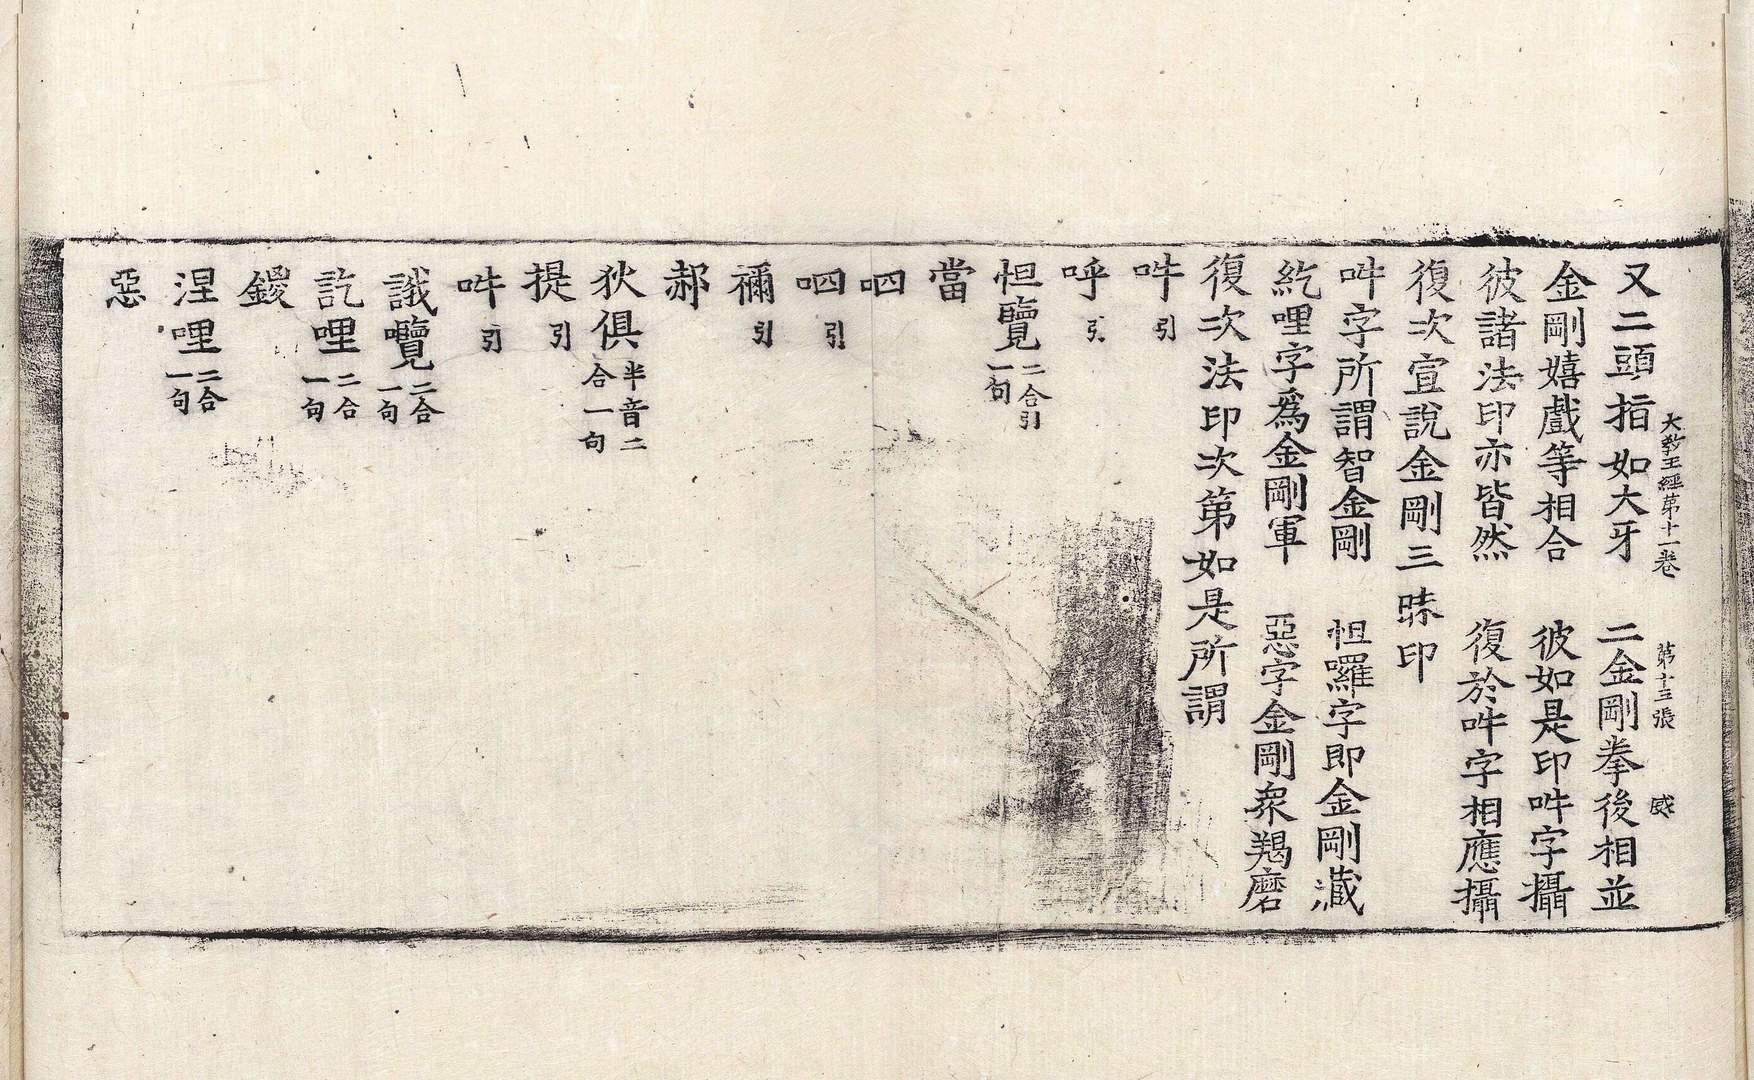 大教王經第十一卷 第十三張 感
又二頭指如大牙 二金剛拳後相並
金剛嬉戲等相合 彼如是印吽字攝
彼諸法印亦皆然 復於吽字相應攝
復次宣說金剛三昧印
吽字所謂智金剛 怛囉字即金剛藏
紇哩字為金剛軍 惡字金剛衆羯磨
復次法印次第如是所謂
吽引
呼引
怛覽二合引一句
當
呬
呬引
禰引
郝
狄俱半音二合一句
提引
吽引
誐囕二合一句
訖哩二合一句
鑁
涅哩二合一句
惡